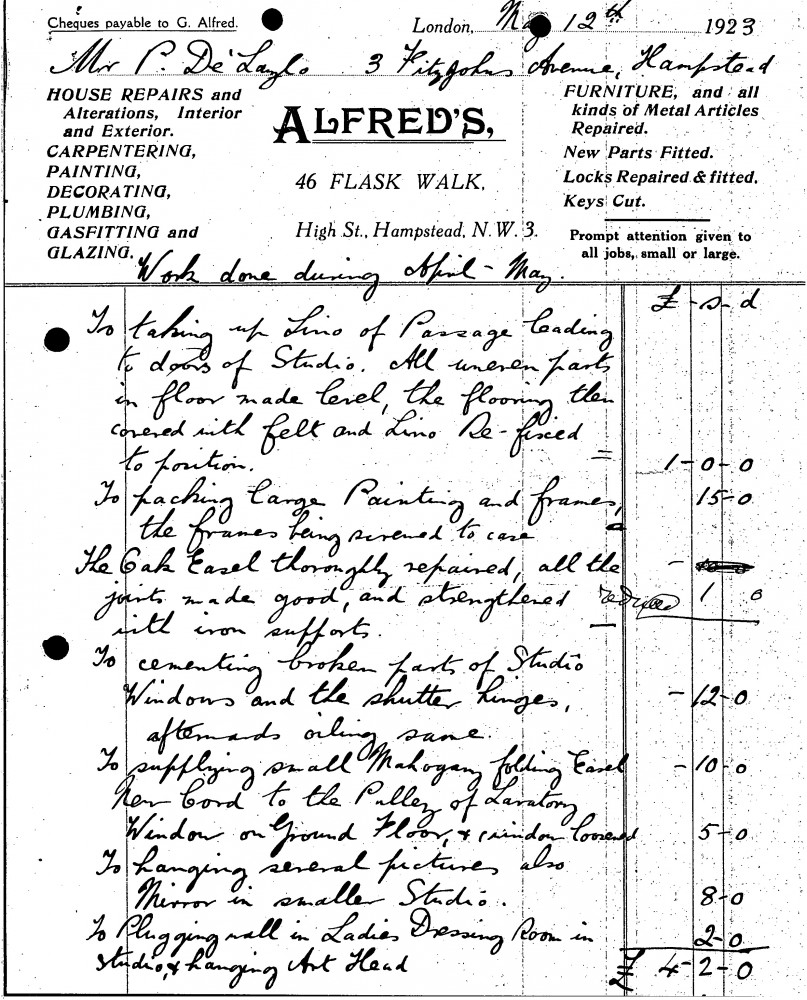 Cheques payable to G. Alfred.
London, May 12th 1923
Mr P. De Laszlo 3 Fitzjohns Avenue, Hampstead
HOUSE REPAIRS and
Alterations, Interior
and Exterior.
CARPENTERING,
PAINTING,
DECORATING,
PLUMBING,
GASFITTING and
GLAZING.
ALFRED'S,
46 FLASK WALK,
High St., Hampstead, N.W. 3.
FURNITURE, and all
kinds of Metal Articles
Repaired.
New Parts Fitted.
Locks Repaired & fitted.
Keys Cut.
Prompt attention given to
all jobs, small or large.
Work done during April - May.
£ - s - d
To taking up Lino of Passage leading
to doors of Studio. All uneven parts
in floor made level, the flooring then
covered with felt and Lino Re-fixed
to position. 1 - 0 - 0
To packing large Painting and frames, 15 - 0
the frames being screwed to case
The Oak Easel thoroughly repaired, all the
joints made good, and strengthened reduced 1 0
with iron supports.
To cementing broken parts of Studio
Windows and the shutter hinges, - 12 - 0
afterwards oiling same.
To supplying small Mahogany folding Easel - 10 - 0
New Cord to the Pulley of Lavatory
Window on Ground Floor, & window loosened 5 - 0
To hanging several pictures also
Mirror in smaller Studio. 8 - 0
To Plugging wall in Ladies Dressing Room in 2 - 0
Studio, & hanging Art Head £ 4 - 2 - 0